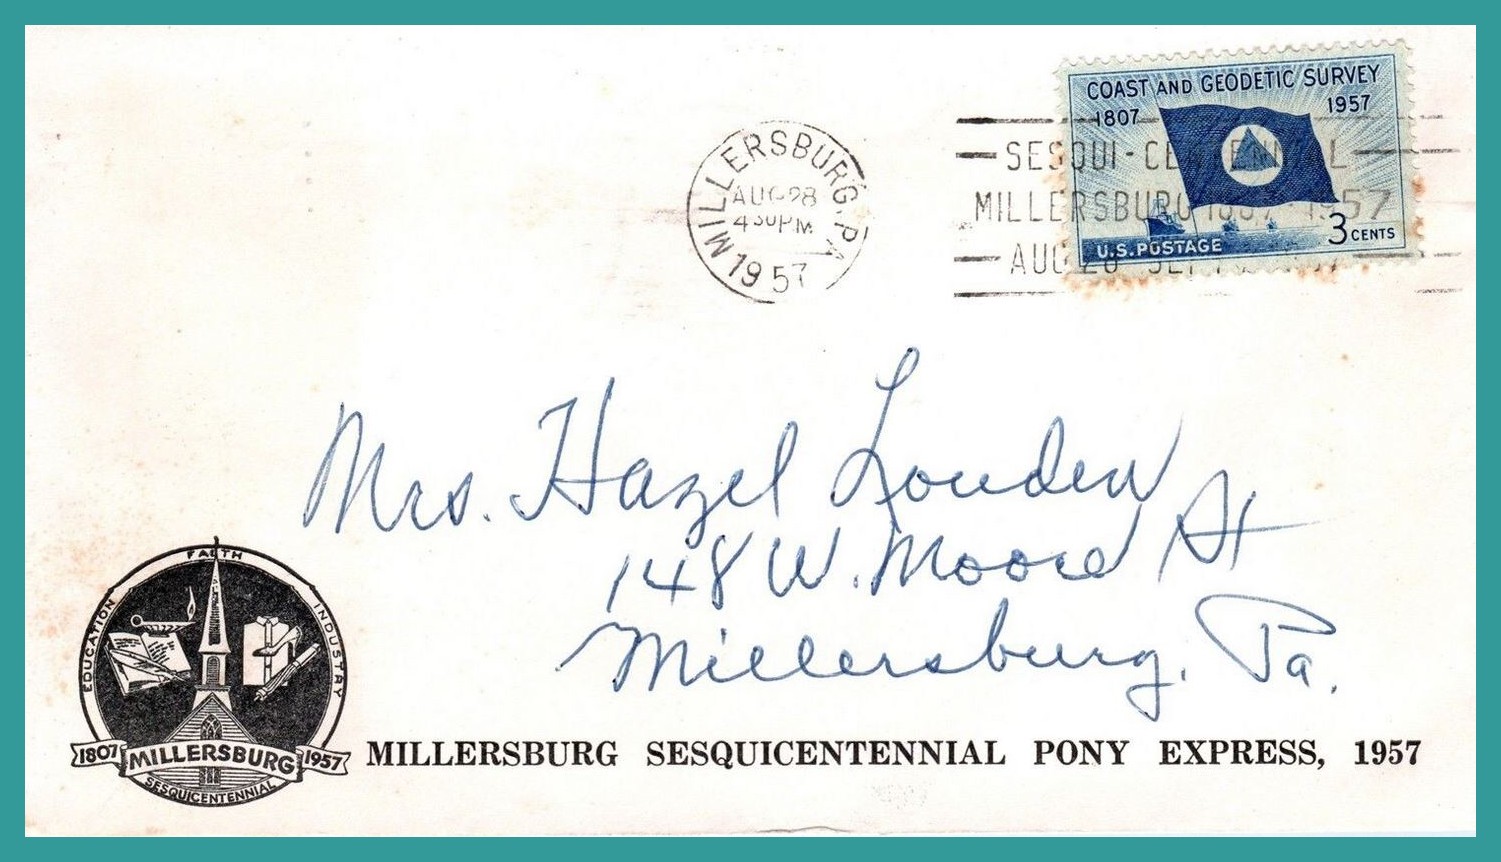 COAST AND GEODETIC SURVEY
1807 1957
U.S. POSTAGE
3 CENTS
MILLERSBURG, PA
AUG 28
4 30 PM
1957
SESQUI-CENTENNIAL
MILLERSBURG 1807-1957
AUG 28 1957
Mrs. Hazel Louden
148 W. Moore St
Millersburg, Pa.
FAITH
EDUCATION
INDUSTRY
1807 MILLERSBURG 1957
SESQUICENTENNIAL
MILLERSBURG SESQUICENTENNIAL PONY EXPRESS, 1957